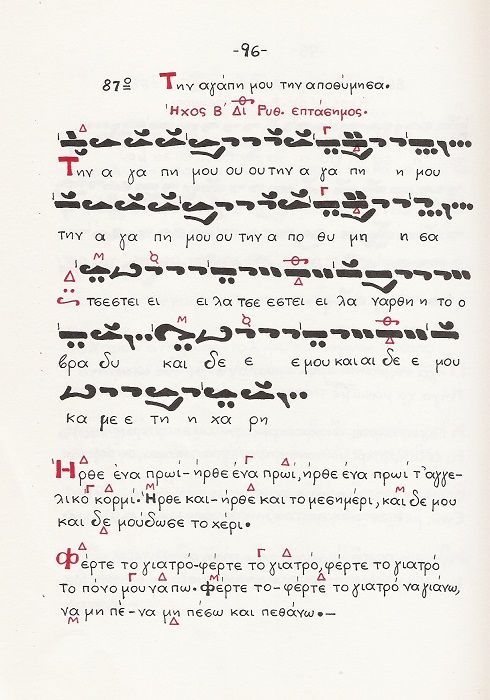 -96-
87ο Την αγάπη μου την αποθύμησα.
Ηχος Β΄ Δι Ρυθ. επτάσημος.
Την α γα πη μου ου ου την α γα πη η μου
την α γα πη μου ου την α πο θυ μη η σα
τσεστει ει ει λα τσε εστει ει λα γαρθη η το ο
βρα δυ και δε ε ε μου και αι δε ε μου
κα με ε τη η χα ρη
Ηρθε ένα πρωί-ήρθε ένα πρωί, ήρθε ένα πρωί τ'αγγε-
λικό κορμί. Ηρθε και-ήρθε και το μεσημέρι, και δε μου
και δε μούδωσε το χέρι.
Φέρτε το γιατρό-φέρτε το γιατρό, φέρτε το γιατρό
το πόνο μου να πω. Φέρτε το-φέρτε το γιατρό να γιάνω,
να μη πέ-να μη πέσω και πεθάνω.—